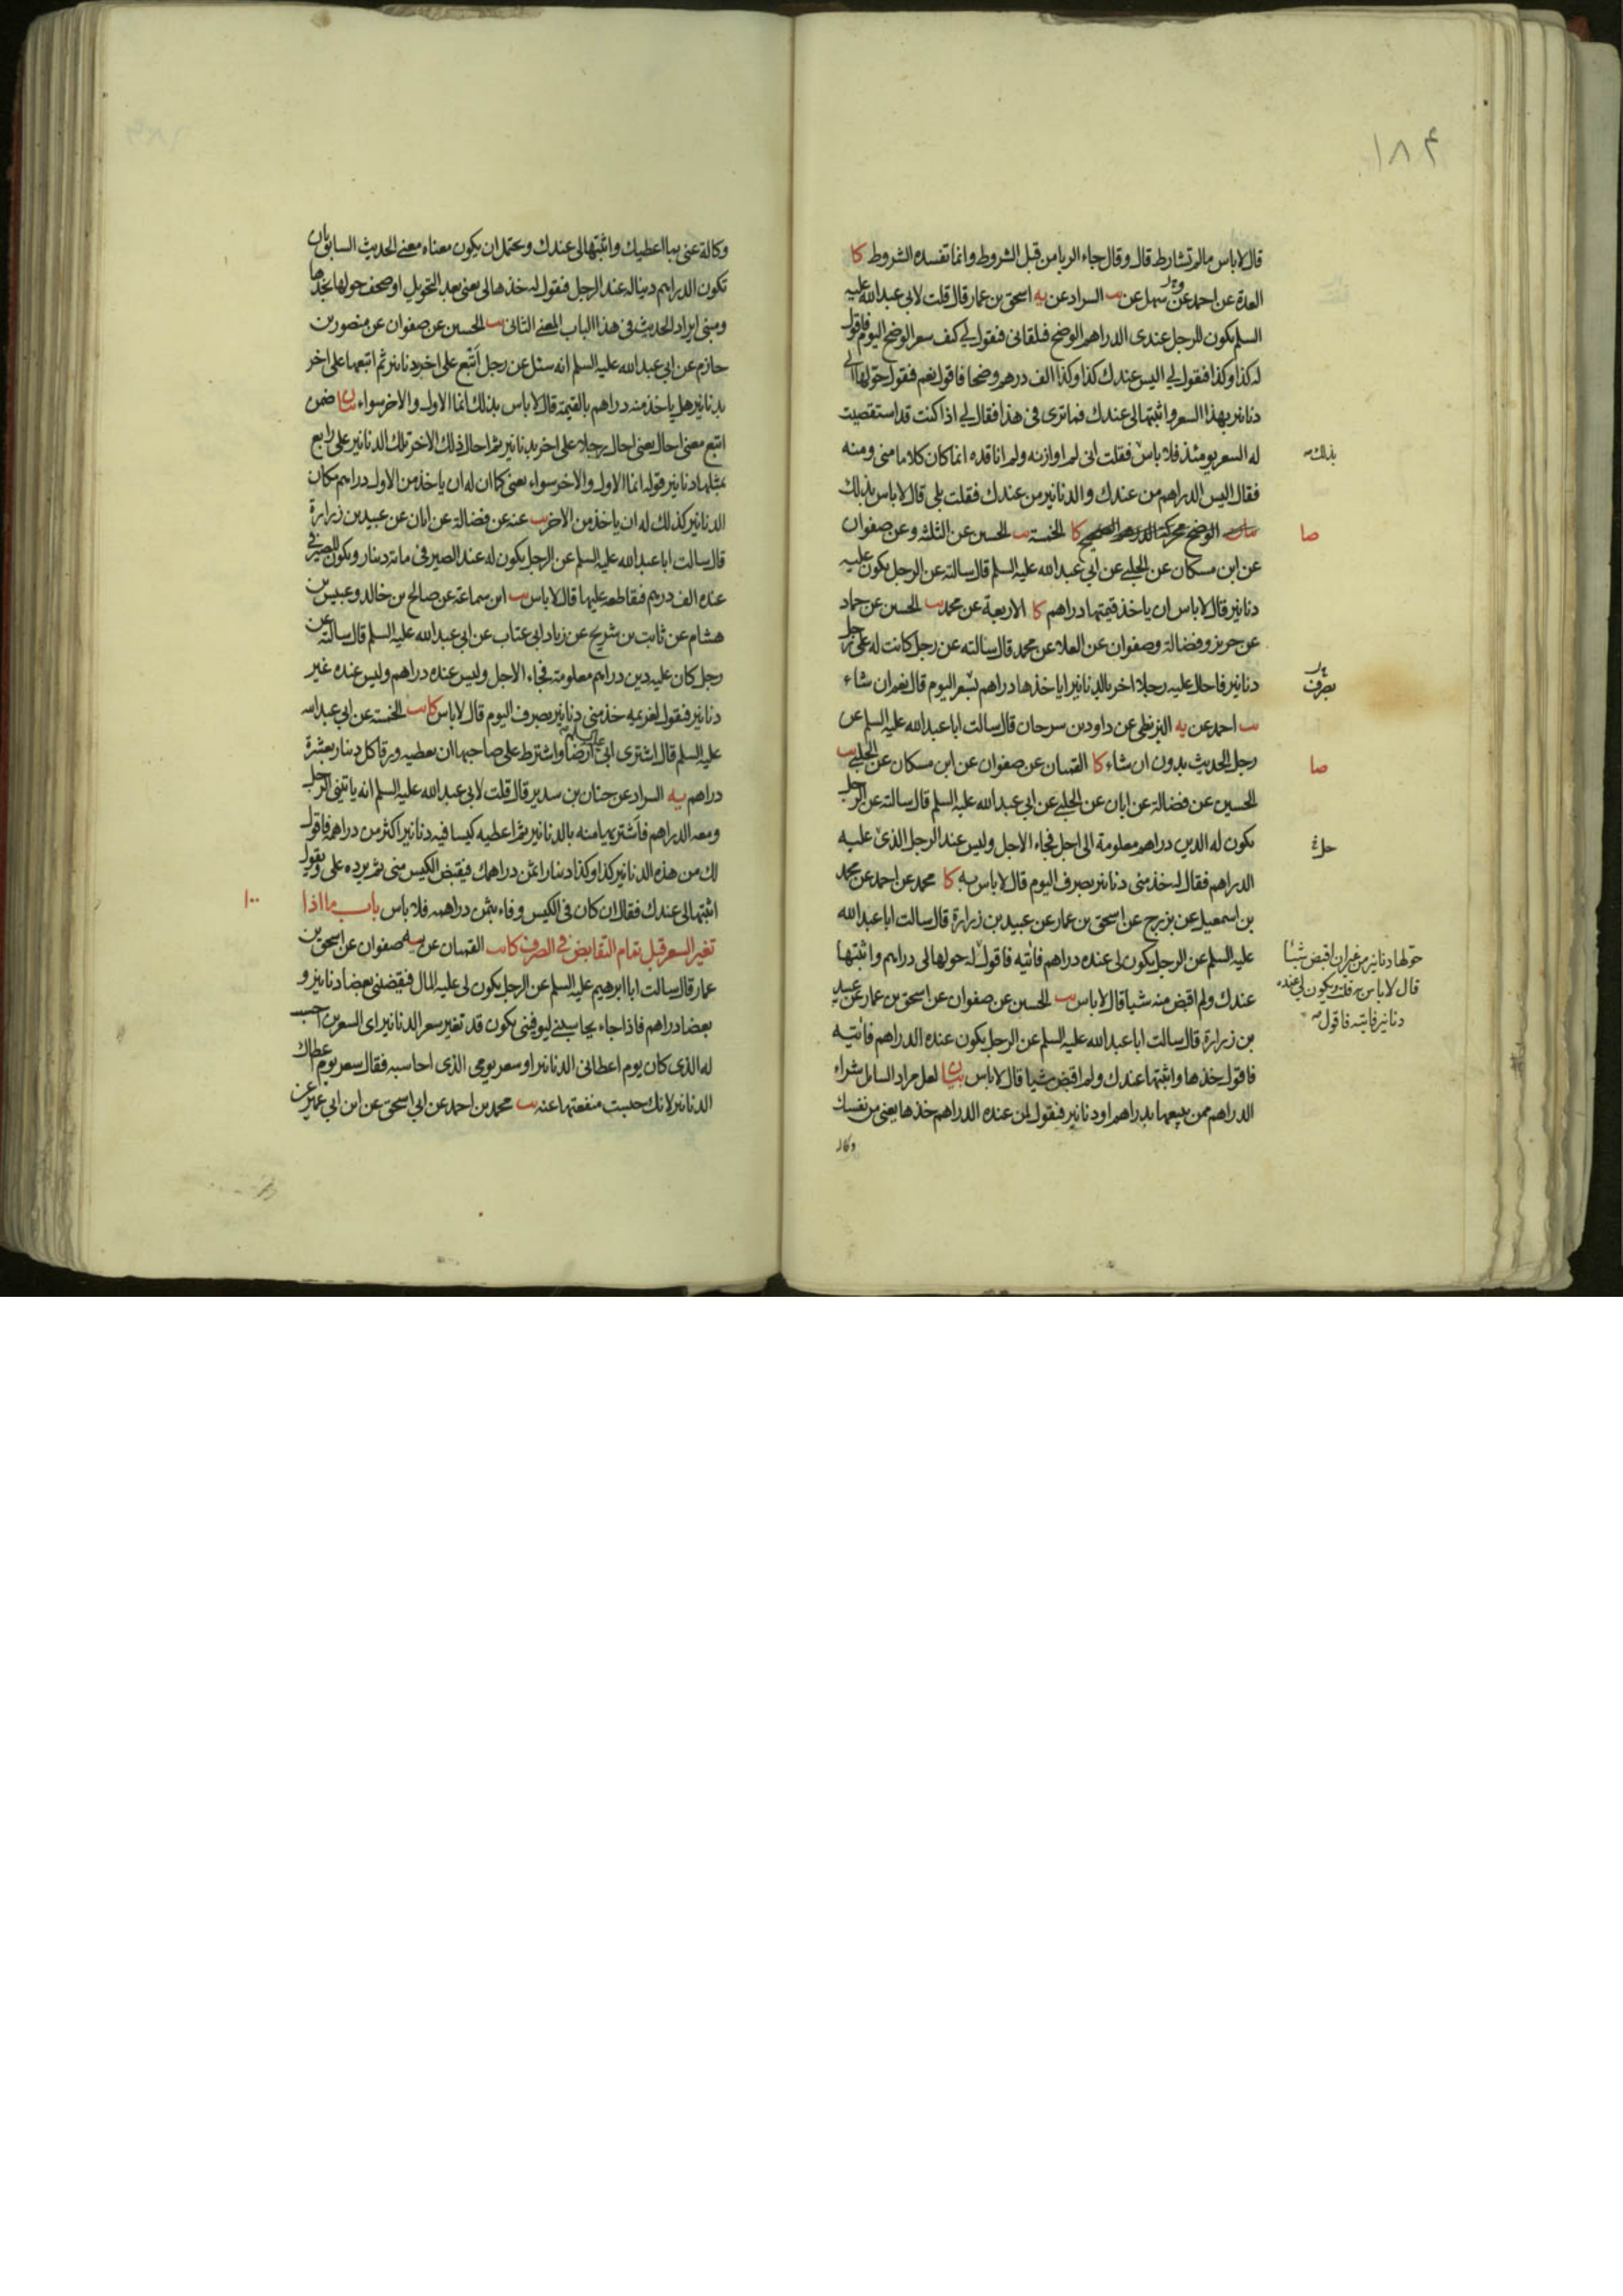 ١٨٤
قال لا باس ما لم تشارط قال وقال جاء الربا من قبل الشروط وانما تفسده الشروط كا
العدة عن احمد عن سهل عن يب السراد عن يه اسحق بن عمار قال قلت لابي عبدالله عليه
السلم يكون للرجل عندى الدراهم الوضح فيلقانى فيقول لي كيف سعر الوضح اليوم فاقول
له كذا وكذا فيقول لي اليس عندك كذا وكذا الف درهم وضحا فاقول نعم فيقول حولها الى
دنانير بهذا السعر واثبتها لى عندك فما ترى فى هذا فقال لي اذا كنت قد استقصيت
له السعر يومئذ فلا باس فقلت انى لم اوازنه ولم اناقده انما كان كلاما منى ومنه
بذلك
فقال اليس الدراهم من عندك والدنانير من عندك فقلت بلى قال لا باس بذلك
الوضح محركة الدرهم الصحيح كا الخمسة يب الحسين عن الثلثة وعن صفوان
صا
عن ابن مسكان عن الحلبي عن ابي عبدالله عليه السلم قال سالته عن الرجل يكون عليه
دنانير قال لا باس ان ياخذ قيمتها دراهم كا الاربعة عن محمد يب الحسين عن حماد
عن حريز وفضالة وصفوان عن العلا عن محمد قال سالته عن رجل كانت له على رجل
دنانير فاحال عليه رجلا اخر بالدنانير اياخذها دراهم بسعر اليوم قال نعم ان شاء
بصرف
يب احمد عن يه البزنطى عن داود بن سرحان قال سالت ابا عبدالله عليه السلم عن
رجل الحديث بدون ان شاء كا القميان عن صفوان عن ابن مسكان عن الحلبي يب
صا
الحسين عن فضالة عن ابان عن الحلبي عن ابي عبدالله عليه السلم قال سالته عن الرجل
يكون له الدين دراهم معلومة الى اجل فجاء الاجل وليس عند الرجل الذى عليه
حل
الدراهم فقال له خذ منى دنانير بصرف اليوم قال لا باس به كا محمد عن احمد عن محمد
بن اسمعيل عن بزرج عن اسحق بن عمار عن عبيد بن زرارة قال سالت ابا عبدالله
عليه السلم عن الرجل يكون لى عنده دراهم فاتيه فاقول له حولها لى دراهم واثبتها
حولها دنانير من غير ان اقبض شيئا
قال لا باس قلت يكون لي عنده
دنانير فاتيه فاقول
عندك ولم اقبض منه شيا قال لا باس يب الحسين عن صفوان عن اسحق بن عمار عن عبيد
بن زرارة قال سالت ابا عبدالله عليه السلم عن الرجل يكون عنده الدراهم فاتيه
فاقول خذها واثبتها عندك ولم اقبض شيا قال لا باس بيان لعل مراد السائل شراء
الدراهم ممن يبيعها بدراهم او دنانير فيقول لمن عنده الدراهم خذها يعنى من نفسك
وكالة
وكالة عنى بما اعطيك واثبتها لى عندك ويحتمل ان يكون معناه معنى الحديث السابق بان
تكون الدراهم دينا له عند الرجل فيقول له خذها لى يعنى بعد التحويل او صحف حولها بخذها
ومبنى ايراد الحديث فى هذا الباب المعنى الثانى يب الحسين عن صفوان عن منصور بن
حازم عن ابي عبدالله عليه السلم انه سئل عن رجل اتبع على اخر دنانير ثم اتبعها على اخر
بدنانير هل ياخذ منه دراهم بالقيمة قال لا باس بذلك انما الاول والاخر سواء بيان ضمن
اتبع معنى احال يعنى احال رجلا على اخر بدنانير ثم احال ذلك الاخر تلك الدنانير على رابع
بمثلها دنانير قوله انما الاول والاخر سواء يعنى كما ان له ان ياخذ من الاول دراهم مكان
الدنانير كذلك له ان ياخذ من الاخر يب عنه عن فضالة عن ابان عن عبيد بن زرارة
قال سالت ابا عبدالله عليه السلم عن الرجل يكون له عند الصيرفى مائة دينار ويكون للصيرفى
عنده الف درهم فيقاطعه عليها قال لا باس يب ابن سماعة عن صالح بن خالد وعبيس بن
هشام عن ثابت بن شريح عن زياد ابي عتاب عن ابي عبدالله عليه السلم قال سالته عن
رجل كان عليه دين دراهم معلومة فجاء الاجل وليس عنده دراهم وليس عنده غير
دنانير فيقول لغريمه خذ منى دنانير بصرف اليوم قال لا باس كا يب الخمسة عن ابي عبدالله
عليه السلم قال اشترى ابى عليه السلم ارضا واشترط على صاحبها ان يعطيه ورقا كل دينار بعشرة
دراهم يه السراد عن حنان بن سدير قال قلت لابي عبدالله عليه السلم انه ياتينى الرجل
ومعه الدراهم فاشتريها منه بالدنانير ثم اعطيه كيسا فيه دنانير اكثر من دراهمه فاقول
لك من هذه الدنانير كذا وكذا دينارا ثمن دراهمك فيقبض الكيس منى ثم يرده على ويقول
اثبتها لى عندك فقال ان كان فى الكيس وفاء بثمن دراهمه فلا باس باب ما اذا
١٠٠
تغير السعر قبل تمام التقابض فى الصرف كا يب القميان عن يه صفوان عن اسحق بن
عمار قال سالت ابا ابرهيم عليه السلم عن الرجل يكون لى عليه المال فيقضينى بعضا دنانير و
بعضا دراهم فاذا جاء يحاسبنى ليوفينى يكون قد تغير سعر الدنانير اى السعرين احسب
له الذى كان يوم اعطانى الدنانير او سعر يومى الذى احاسبه فقال سعر يوم اعطاك
الدنانير لانك حبست منفعتها عنه يب محمد بن احمد عن ابى اسحق عن ابن ابي عمير عن